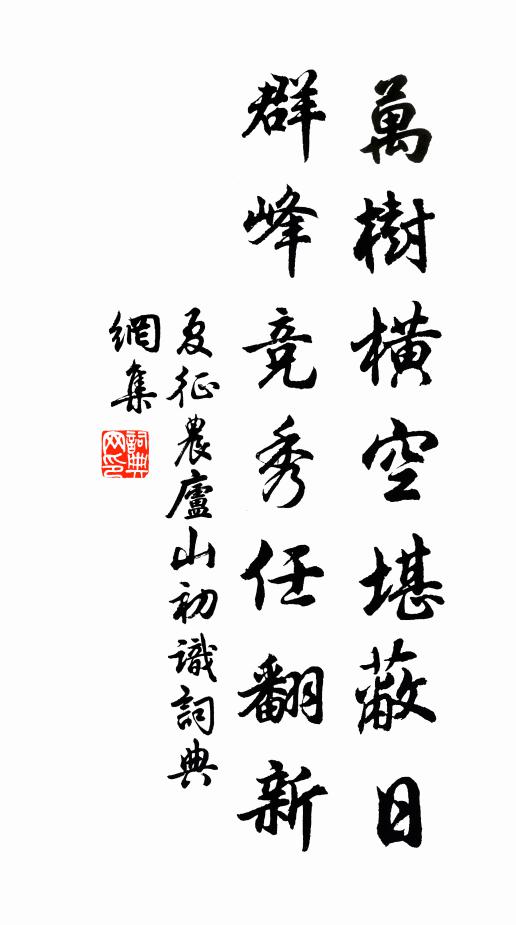 萬樹橫空堪蔽日
群峰競秀任翻新
夏征農廬山初識詞典
網集
詞典網印